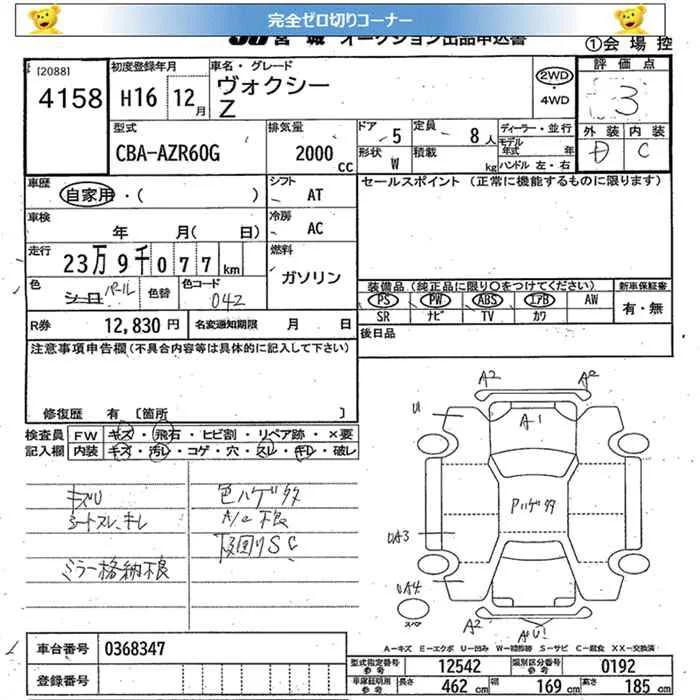 完全ゼロ切りコーナー
JU 宮城 オークション出品申込書
①会場控
[2088]
4158
初度登録年月
H16 12月
車名・グレード
ヴォクシー
Z
2WD
・
4WD
評価点
3
外装 内装
D C
型式
CBA-AZR60G
排気量
2000 cc
ドア 5
定員 8人
形状 W
積載 kg
ディーラー・並行
モデル年式 年
ハンドル 左・右
車歴
自家用・( )
シフト
AT
セールスポイント (正常に機能するものに限ります)
車検
年 月( 日)
冷房
AC
走行
23万9千077km
燃料
ガソリン
色
パール
色替
色コード
042
装備品(純正品に限り〇をつけてください)
新車保証書
PS PW ABS エアB AW
SR ナビ TV カワ
有・無
R券 12,830円
名変通知期限 月 日
後日品
注意事項申告欄(不具合内容等は具体的に記入して下さい)
修復歴 有 [箇所 ]
検査員 FW キズ・飛石・ヒビ割・リペア跡・×要
記入欄 内装 キズ・汚レ・コゲ・穴・スレ・キレ・破レ
キズU
シートスレ、キレ
ミラー格納不良
色ハゲ多
A/C不良
下回りSC
A2
A2
U
A1
Pハゲ多
UA3
UA4
スペア
A2
AU1
A-キズ E-エクボ U-凹み W-補修跡 S-サビ C-腐食 XX-交換済
車台番号 0368347
登録番号
型式指定番号 参考 12542
類別区分番号 参考 0192
車庫証明用 参考 長さ 462 cm 幅 169 cm 高さ 185 cm